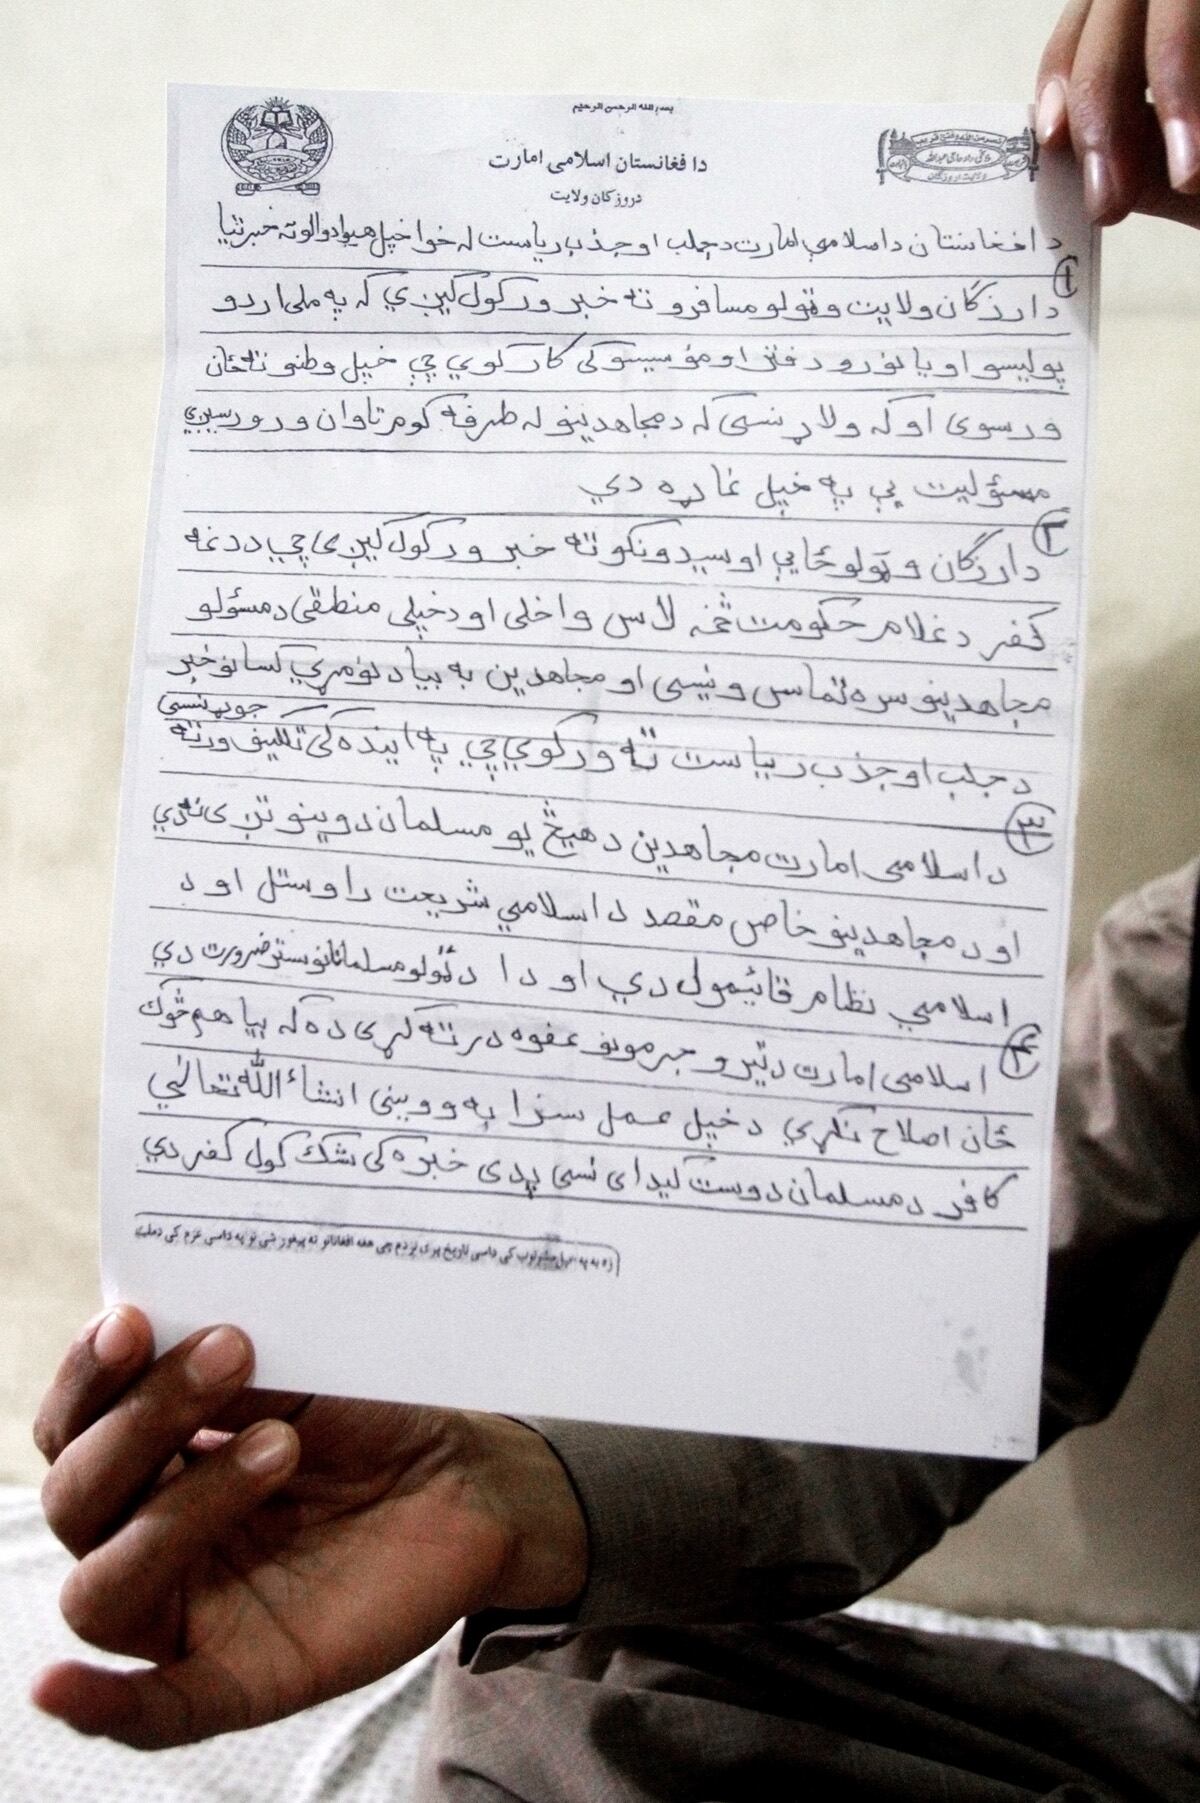 بسم الله الرحمن الرحیم
دافغانستان اسلامی امارت
دروزگان ولایت
د افغانستان داسلامي امارت دجلب او جذب ریاست له خوا خپل هیوادوالوته خبرتیا
①
دارزگان ولایت وټولو مسافرو ته خبر ورکول کیږي که په ملی اردو
پولیسو او یا نورو دفتر او مؤسیسو کی کار کوي چې خپل وطنو ته ځان
ورسوی او که ولاړ نسی که دمجاهدینو له طرفه کوم تاوان ورورسیږي
مسؤلیت یې په خپل غاړه دي
②
دارزگان وټولو ځایي اوسیدونکو ته خبر ورکول کیږی چې ددغه
کفر د غلام حکومت څخه لاس واخلی او دخپلی منطقی دمسؤلو
مجاهدینو سره تماس ونیسی او مجاهدین به بیا دنومړي کسانو خبر
دجلب او جذب ریاست ته ورکوي چې په اینده کی تکلیف ورته جوړ نسی
③
داسلامی امارت مجاهدین د هیڅ یو مسلمان دوینو تږی نه دي
او د مجاهدینو خاص مقصد د اسلامي شریعت راوستل او د
اسلامي نظام قائیمول دي او دا دټولو مسلمانانو ستر ضرورت دي
④
اسلامی امارت دتیرو جرمونو عفوه درته کړی ده که بیا هم څوک
ځان اصلاح نکړي دخپل عمل سزا به وویني انشاء الله تعالی
کافر دمسلمان دوست کیدای نسی پدی خبره کی شک کول کفر دي
زه به په خپل کی داسی تاریخ پری نږدم چې هغه افغانانو ته پیغور شی نو په داسی عزم کی دملت